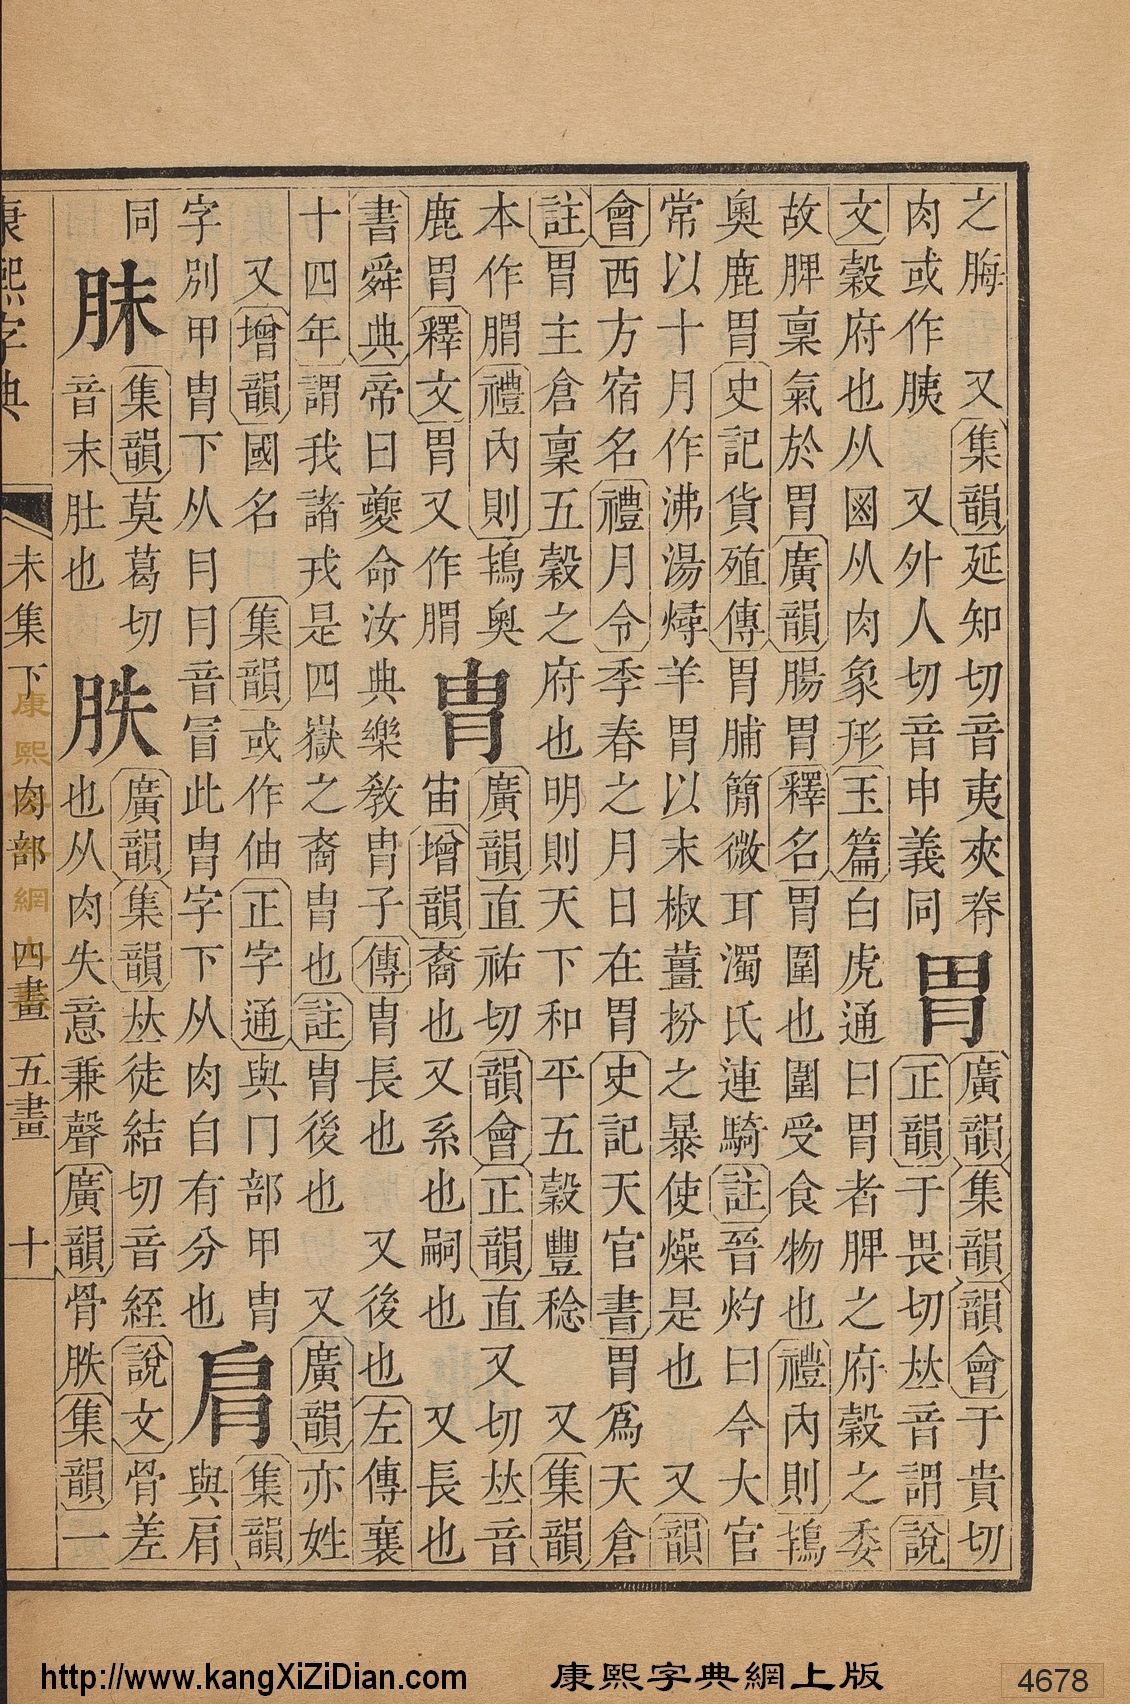 之脢　又集韻延知切音夷夾脊
肉或作胰　又外人切音申義同胃廣韻集韻韻會于貴切正韻于畏切𠀤音謂說
文穀府也从𡇒从肉象形玉篇白虎通曰胃者脾之府穀之委
故脾稟氣於胃廣韻腸胃釋名胃圍也圍受食物也禮內則鴇
奧鹿胃史記貨殖傳胃脯簡微耳濁氏連騎註晉灼曰今大官
常以十月作沸湯燖羊胃以末椒薑扮之暴使燥是也　又韻
會西方宿名禮月令季春之月日在胃史記天官書胃爲天倉
註胃主倉稟五穀之府也明則天下和平五穀豐稔　又集韻
本作䐴禮內則鴇奧
鹿胃釋文胃又作䐴冑廣韻直祐切韻會正韻直又切𠀤音
宙增韻裔也又系也嗣也　又長也
書舜典帝曰夔命汝典樂敎冑子傳冑長也　又後也左傳襄
十四年謂我諸戎是四嶽之裔冑也註冑後也　又廣韻亦姓
又增韻國名　集韻或作伷正字通與冂部甲冑
字別甲冑下从冃冃音冒此冑字下从肉自有分也肩集韻與肩
同　𦙶集韻莫葛切
音末肚也胅廣韻集韻𠀤徒結切音絰說文骨差
也从肉失意兼聲廣韻骨胅集韻一
康熙字典　未集下　肉部　四畫　五畫　十
康熙　網上
http://www.kangXiZiDian.com　康熙字典網上版　4678